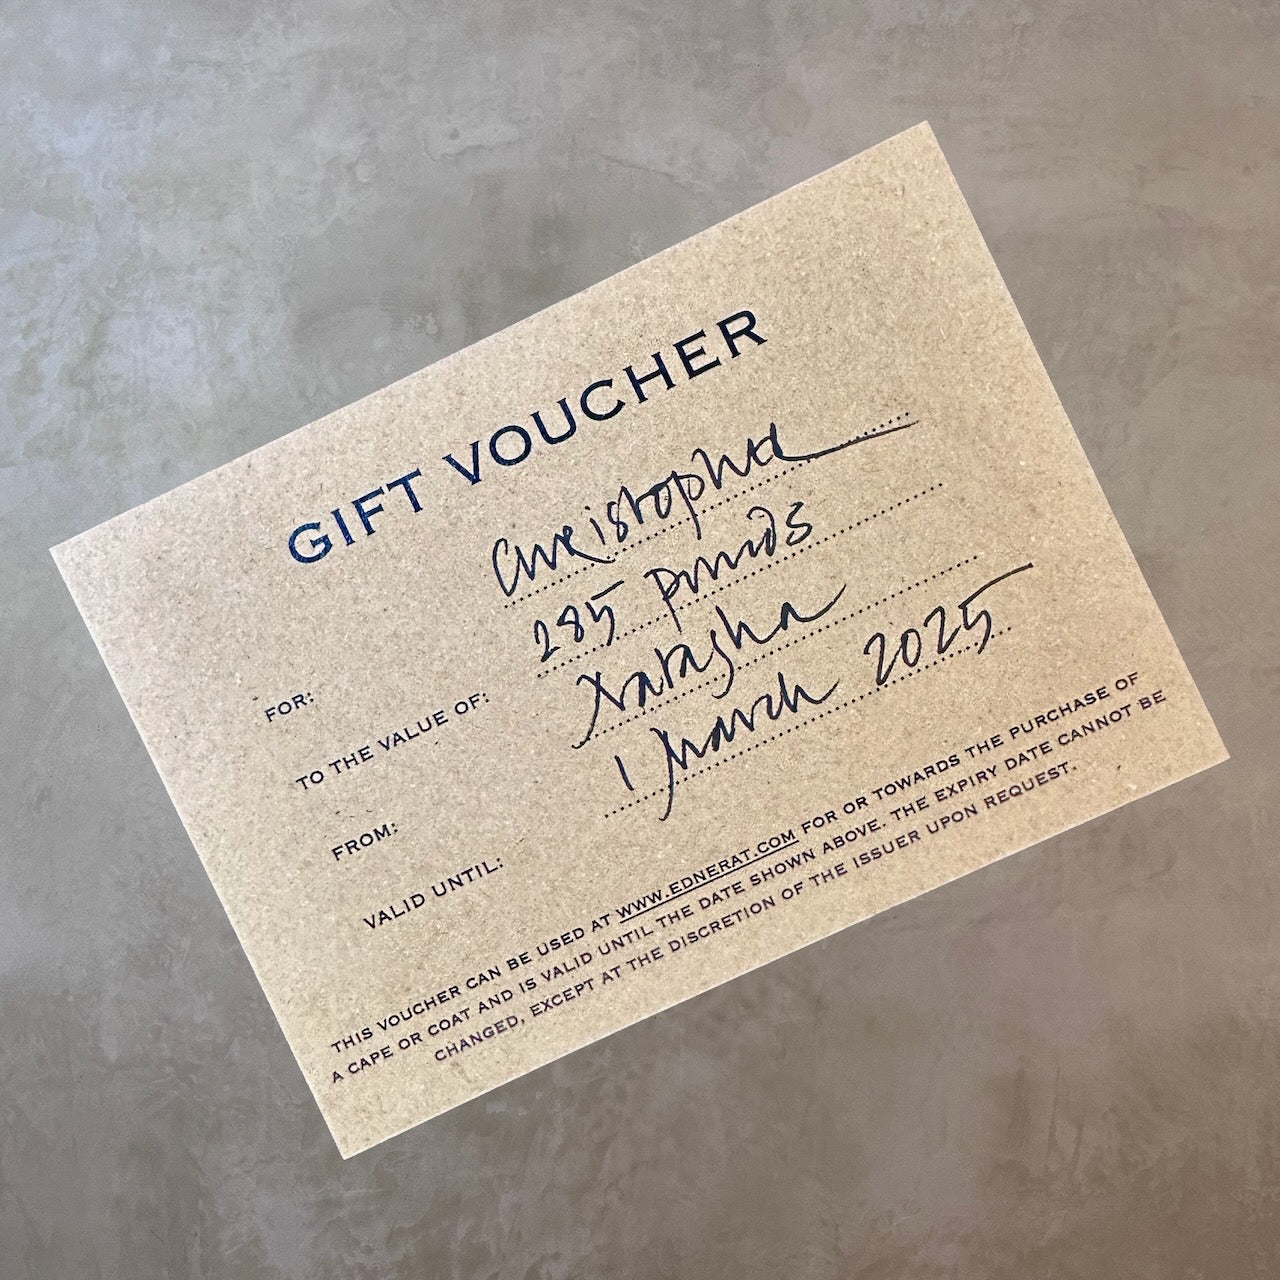 GIFT VOUCHER
FOR: Christopher
TO THE VALUE OF: 285 pounds
FROM: Natasha
VALID UNTIL: 1 March 2025
THIS VOUCHER CAN BE USED AT WWW.EDNERAT.COM FOR OR TOWARDS THE PURCHASE OF
A CAPE OR COAT AND IS VALID UNTIL THE DATE SHOWN ABOVE. THE EXPIRY DATE CANNOT BE
CHANGED, EXCEPT AT THE DISCRETION OF THE ISSUER UPON REQUEST.